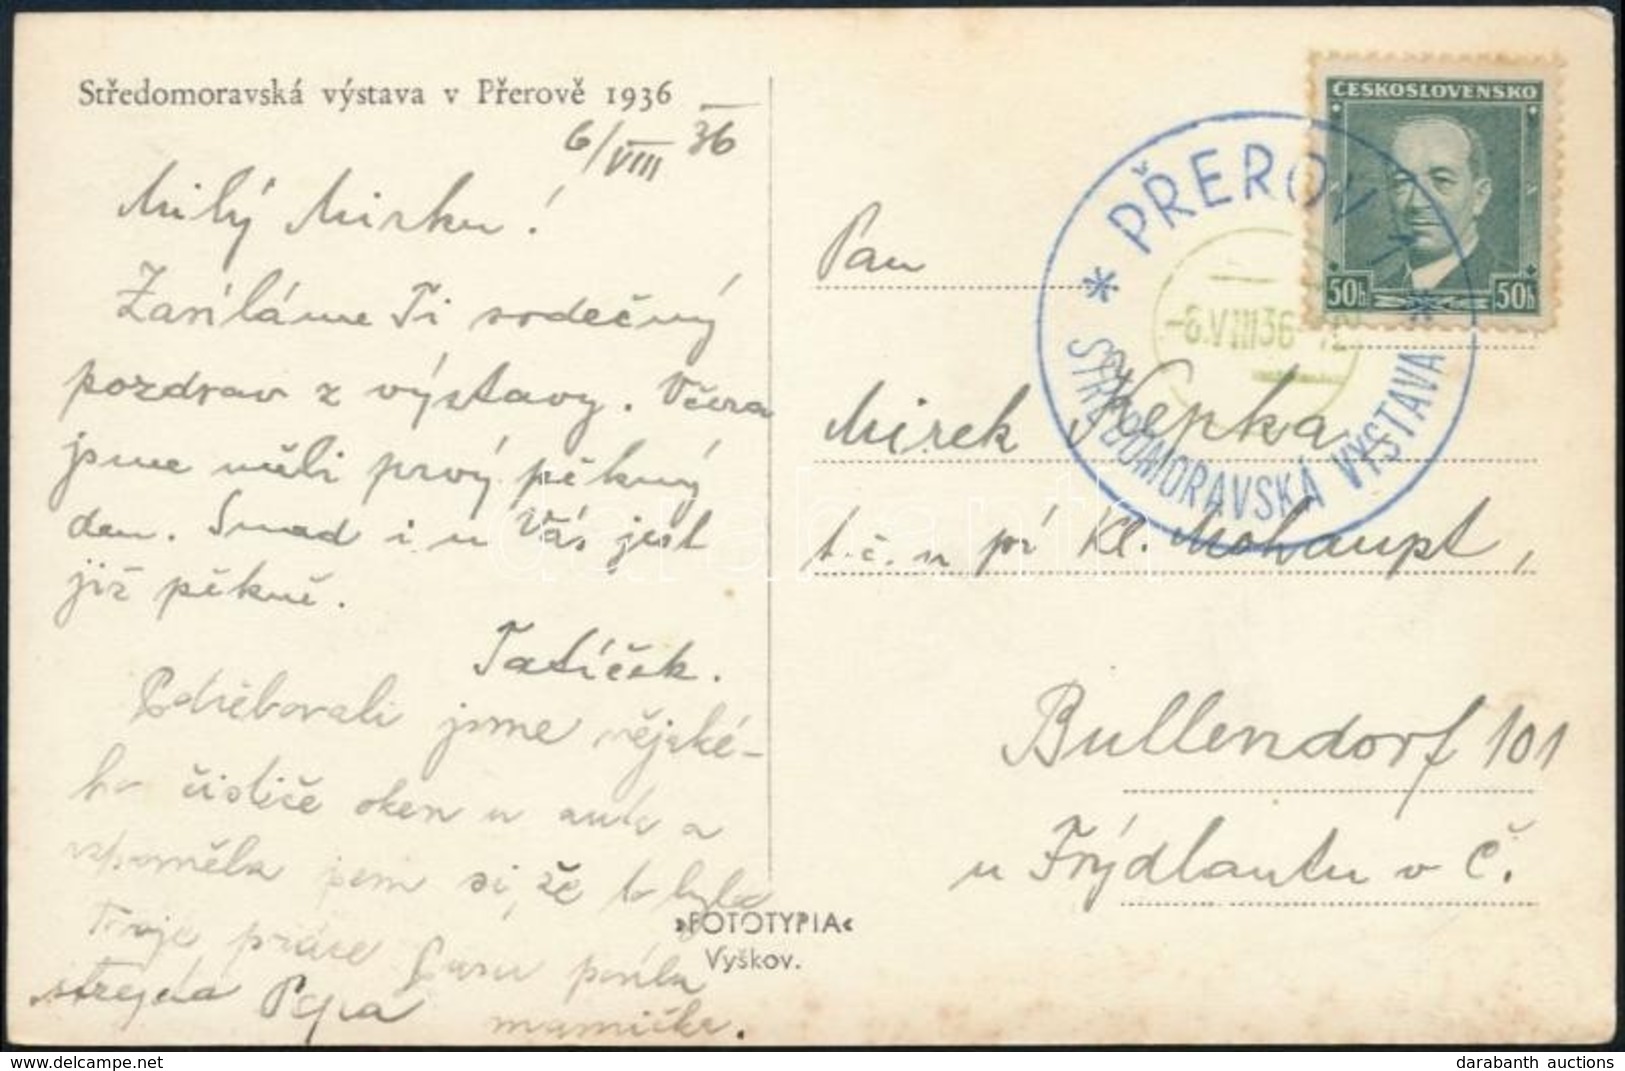 Středomoravská výstava v Přerově 1936
6/VIII 36
Milý Mirku!
Zasíláme Ti srdečný
pozdrav z výstavy. Včera
jsme měli prvý pěkný
den. Snad i u Vás jest
již pěkně.
Tatíček.
Potřebovali jsme nějaké-
ho čističe oken u auta a
vzpoměla jsem si, že to byla
Tvoje práce posílá
strejda Pepa maminka.
»FOTOTYPIA«
Vyškov.
ČESKOSLOVENSKO
50h 50h
* PŘEROV *
-6.VIII36
STŘEDOMORAVSKÁ VÝSTAVA
Pan
Mirek Kepka
t.č. u př Kl. Mohaupt,
Bullendorf 101
u Frýdlantu v Č.
darabanth
darabanth auctions